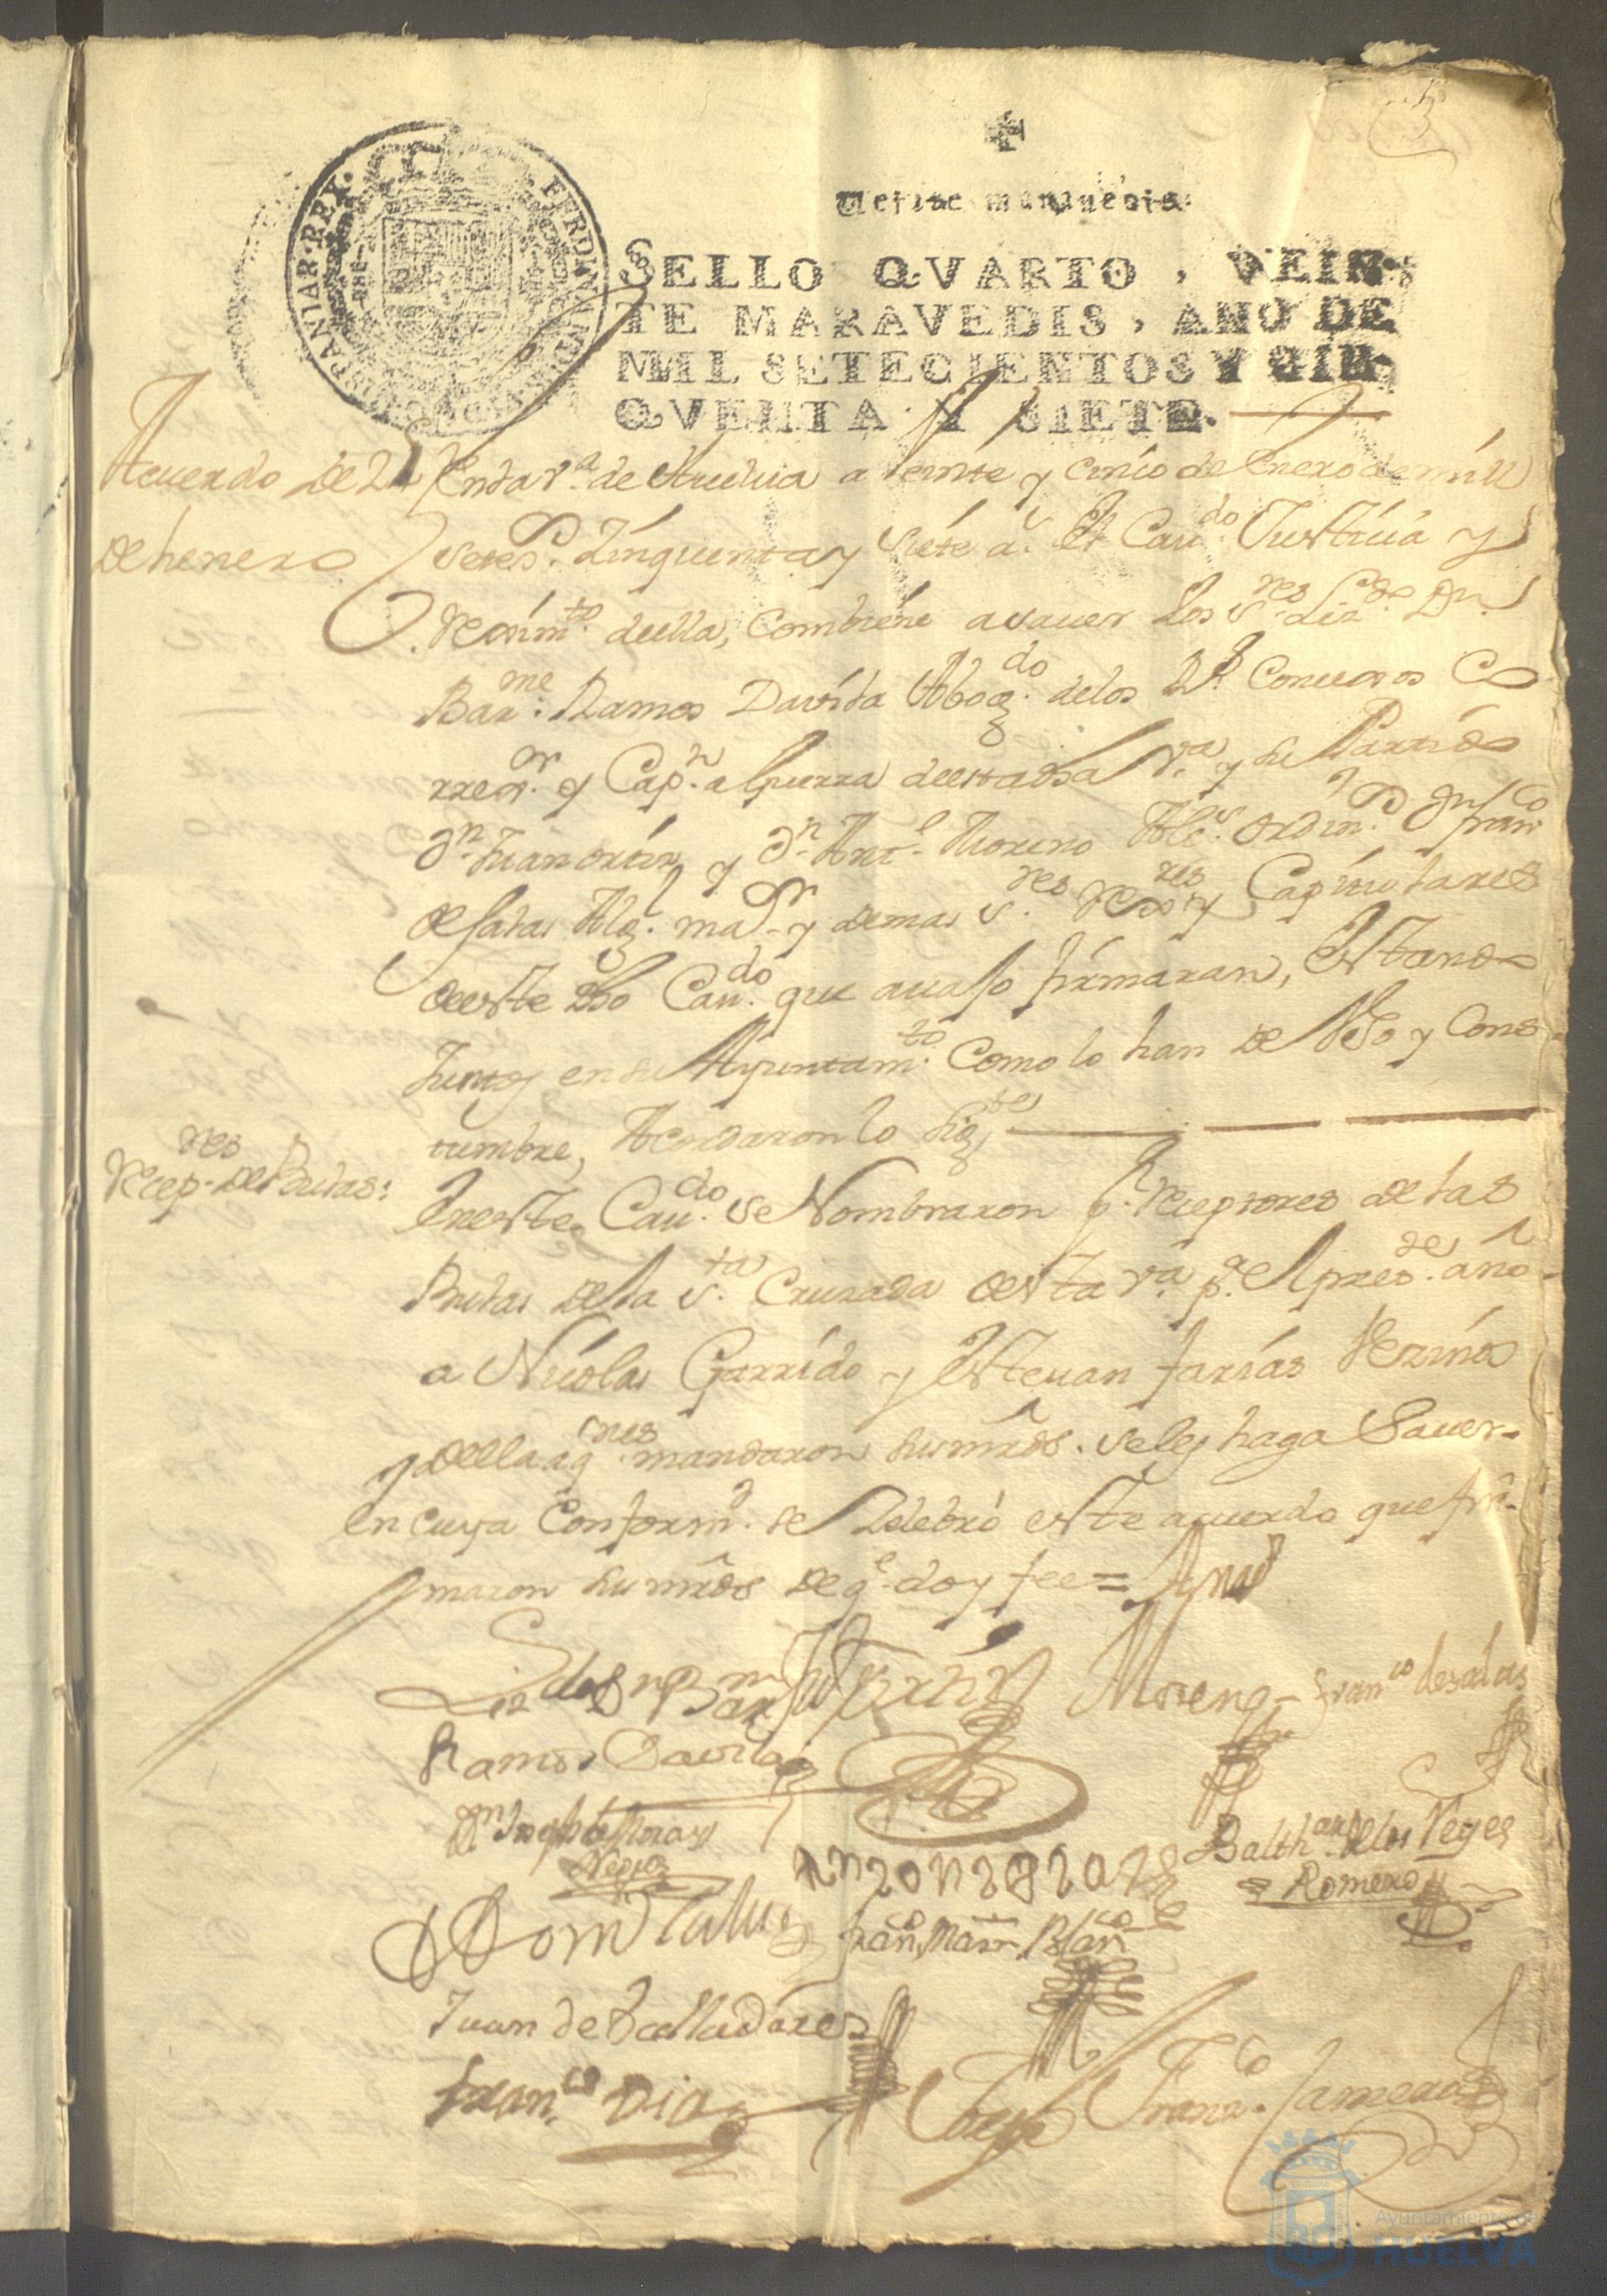 Veinte maravedis.
SELLO QVARTO, VEIN-
TE MARAVEDIS, AÑO DE
MIL SETECIENTOS Y CIN-
QVENTA Y SIETE.
HISPANIAR·REX·
FERDINANDVS
Acuerdo de 25
de henero
En la v.ª de Huelva a veinte y cinco de Enero de mill
setes. Zinquenta y siete a.s El Cav.do Justicia y
Rexim.to della, combiene a saver los S.res Liz.do Dn.
Bar.me Ramos Davila Abog.do de los R.s Concexos Co
rrex.or y Cap.n a Guerra de esta dha V.ª y su Partido
Dn. Juan Ortiz y Dn. Ant.o Moreno Alc.s ordin.s Dn. Fran.co
de salas Alg. ma.or y demas S.res Rex.res y Capitulares
de este dho Cav.do que avajo firmaran, Estando
Juntos en su Ayuntam.to Como lo han de Uso y Cons
tumbre, Acordaron lo sig.te
Recep.res de Bulas:
En este Cav.do se Nombraron p.r Receptores de las
Bulas de la S.ta Cruzada de esta v.ª p.ª el pres.te año
a Nicolas Garrido y Estevan farias Vezinos
de ella a q.nes mandaron sus mrds. se les haga Saver.
en cuya Conform.d se Zelebró este acuerdo que fir-
maron sus mrds de q.e doy fee=
Liz.do Dn Bar.me
Ramos Davila
Ortiz
Moreno
Fran.co de salas
Balth.ar de los Reyes
Romero
Fran.co Mar.n Blan.co
Juan de Valladares
Fran.co Dias
Joseph Fran.co Zamorano
Ayuntamiento de
HUELVA